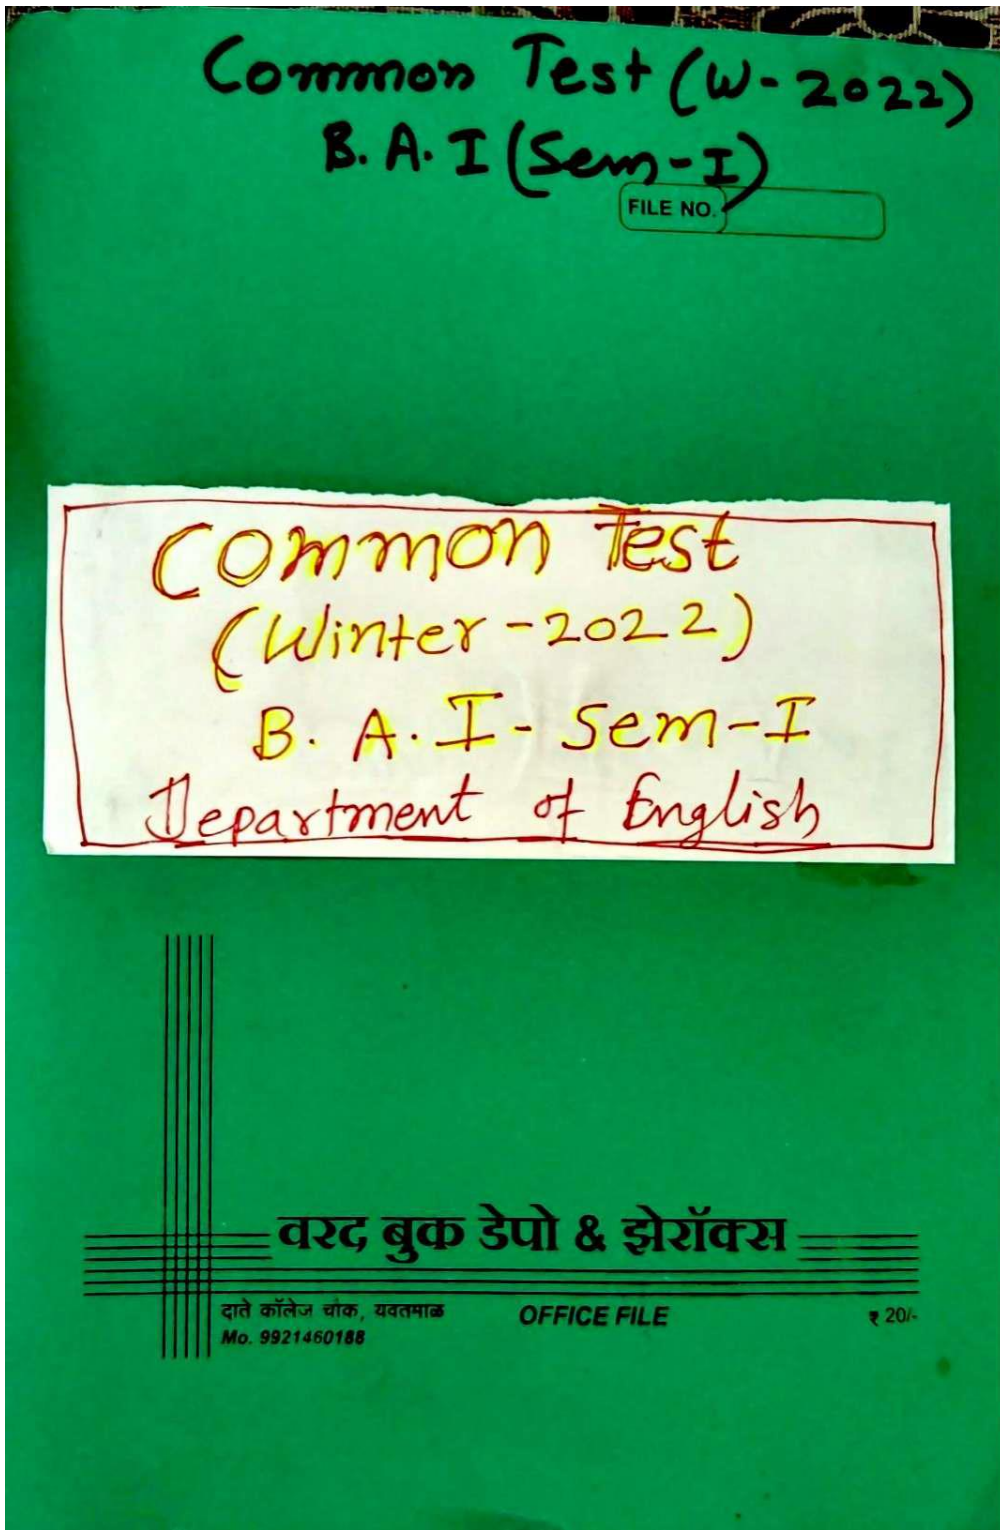 Common Test (W-2022)
B. A. I (Sem-I)
FILE NO.
Common Test
(Winter-2022)
B. A. I - Sem-I
Department of English
वरद बुक डेपो & झेरॉक्स
दाते कॉलेज चौक, यवतमाळ OFFICE FILE ₹ 20/-
Mo. 9921460188